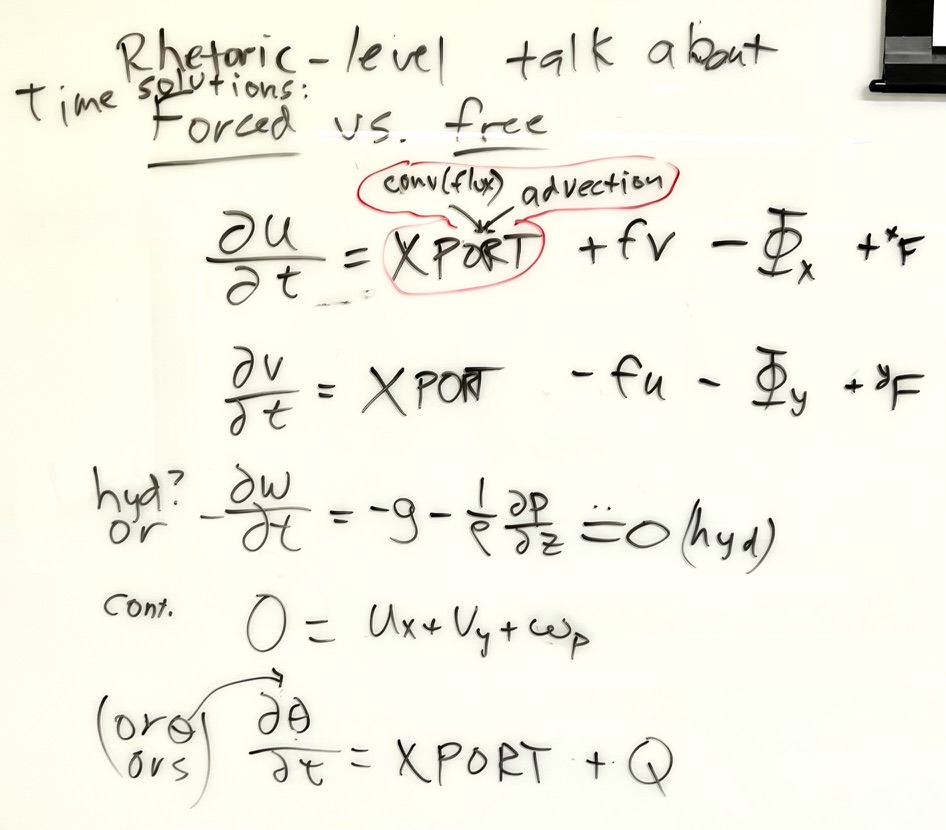 Rhetoric-level talk about
Time solutions:
Forced vs. free
conv(flux) advection
∂u/∂t = XPORT + fv - Φx + ˣF
∂v/∂t = XPORT - fu - Φy + ʸF
hyd? or - ∂w/∂t = -g - 1/ρ ∂p/∂z ≐ 0 (hyd)
Cont. 0 = Ux + Vy + ωp
(or θ or s) ∂θ/∂t = XPORT + Q